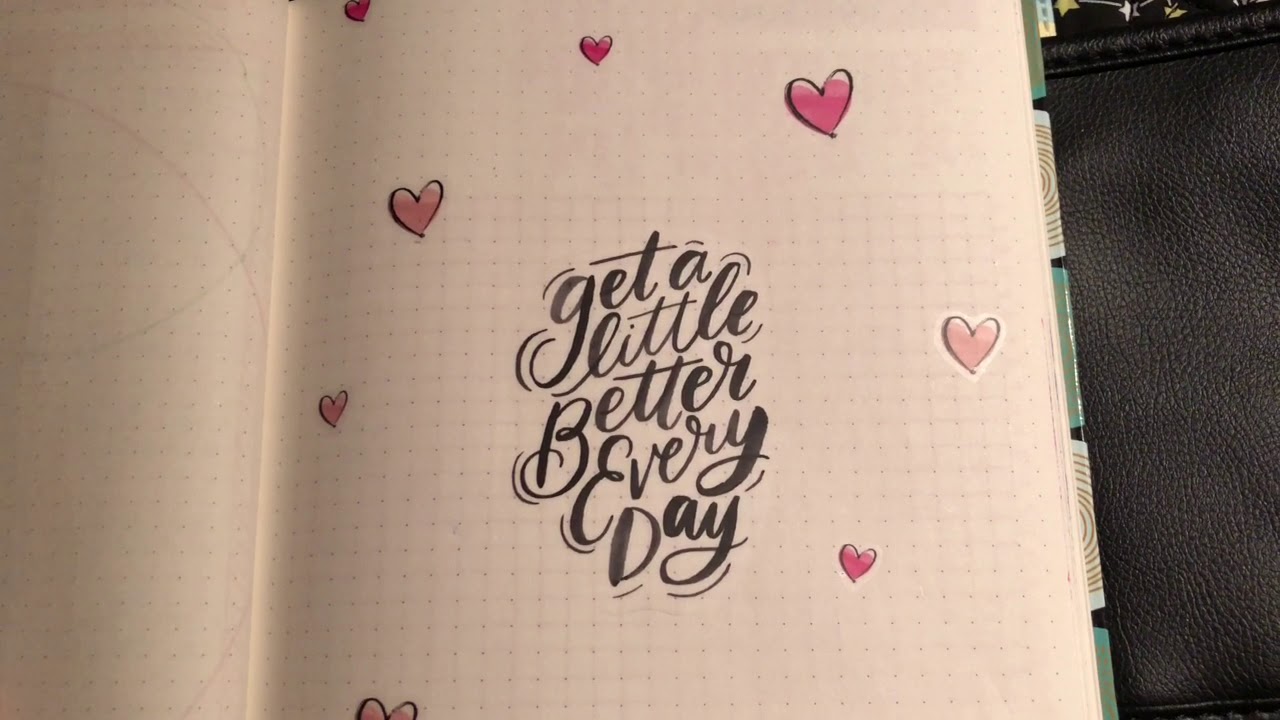 get a
little
Better
Every
Day